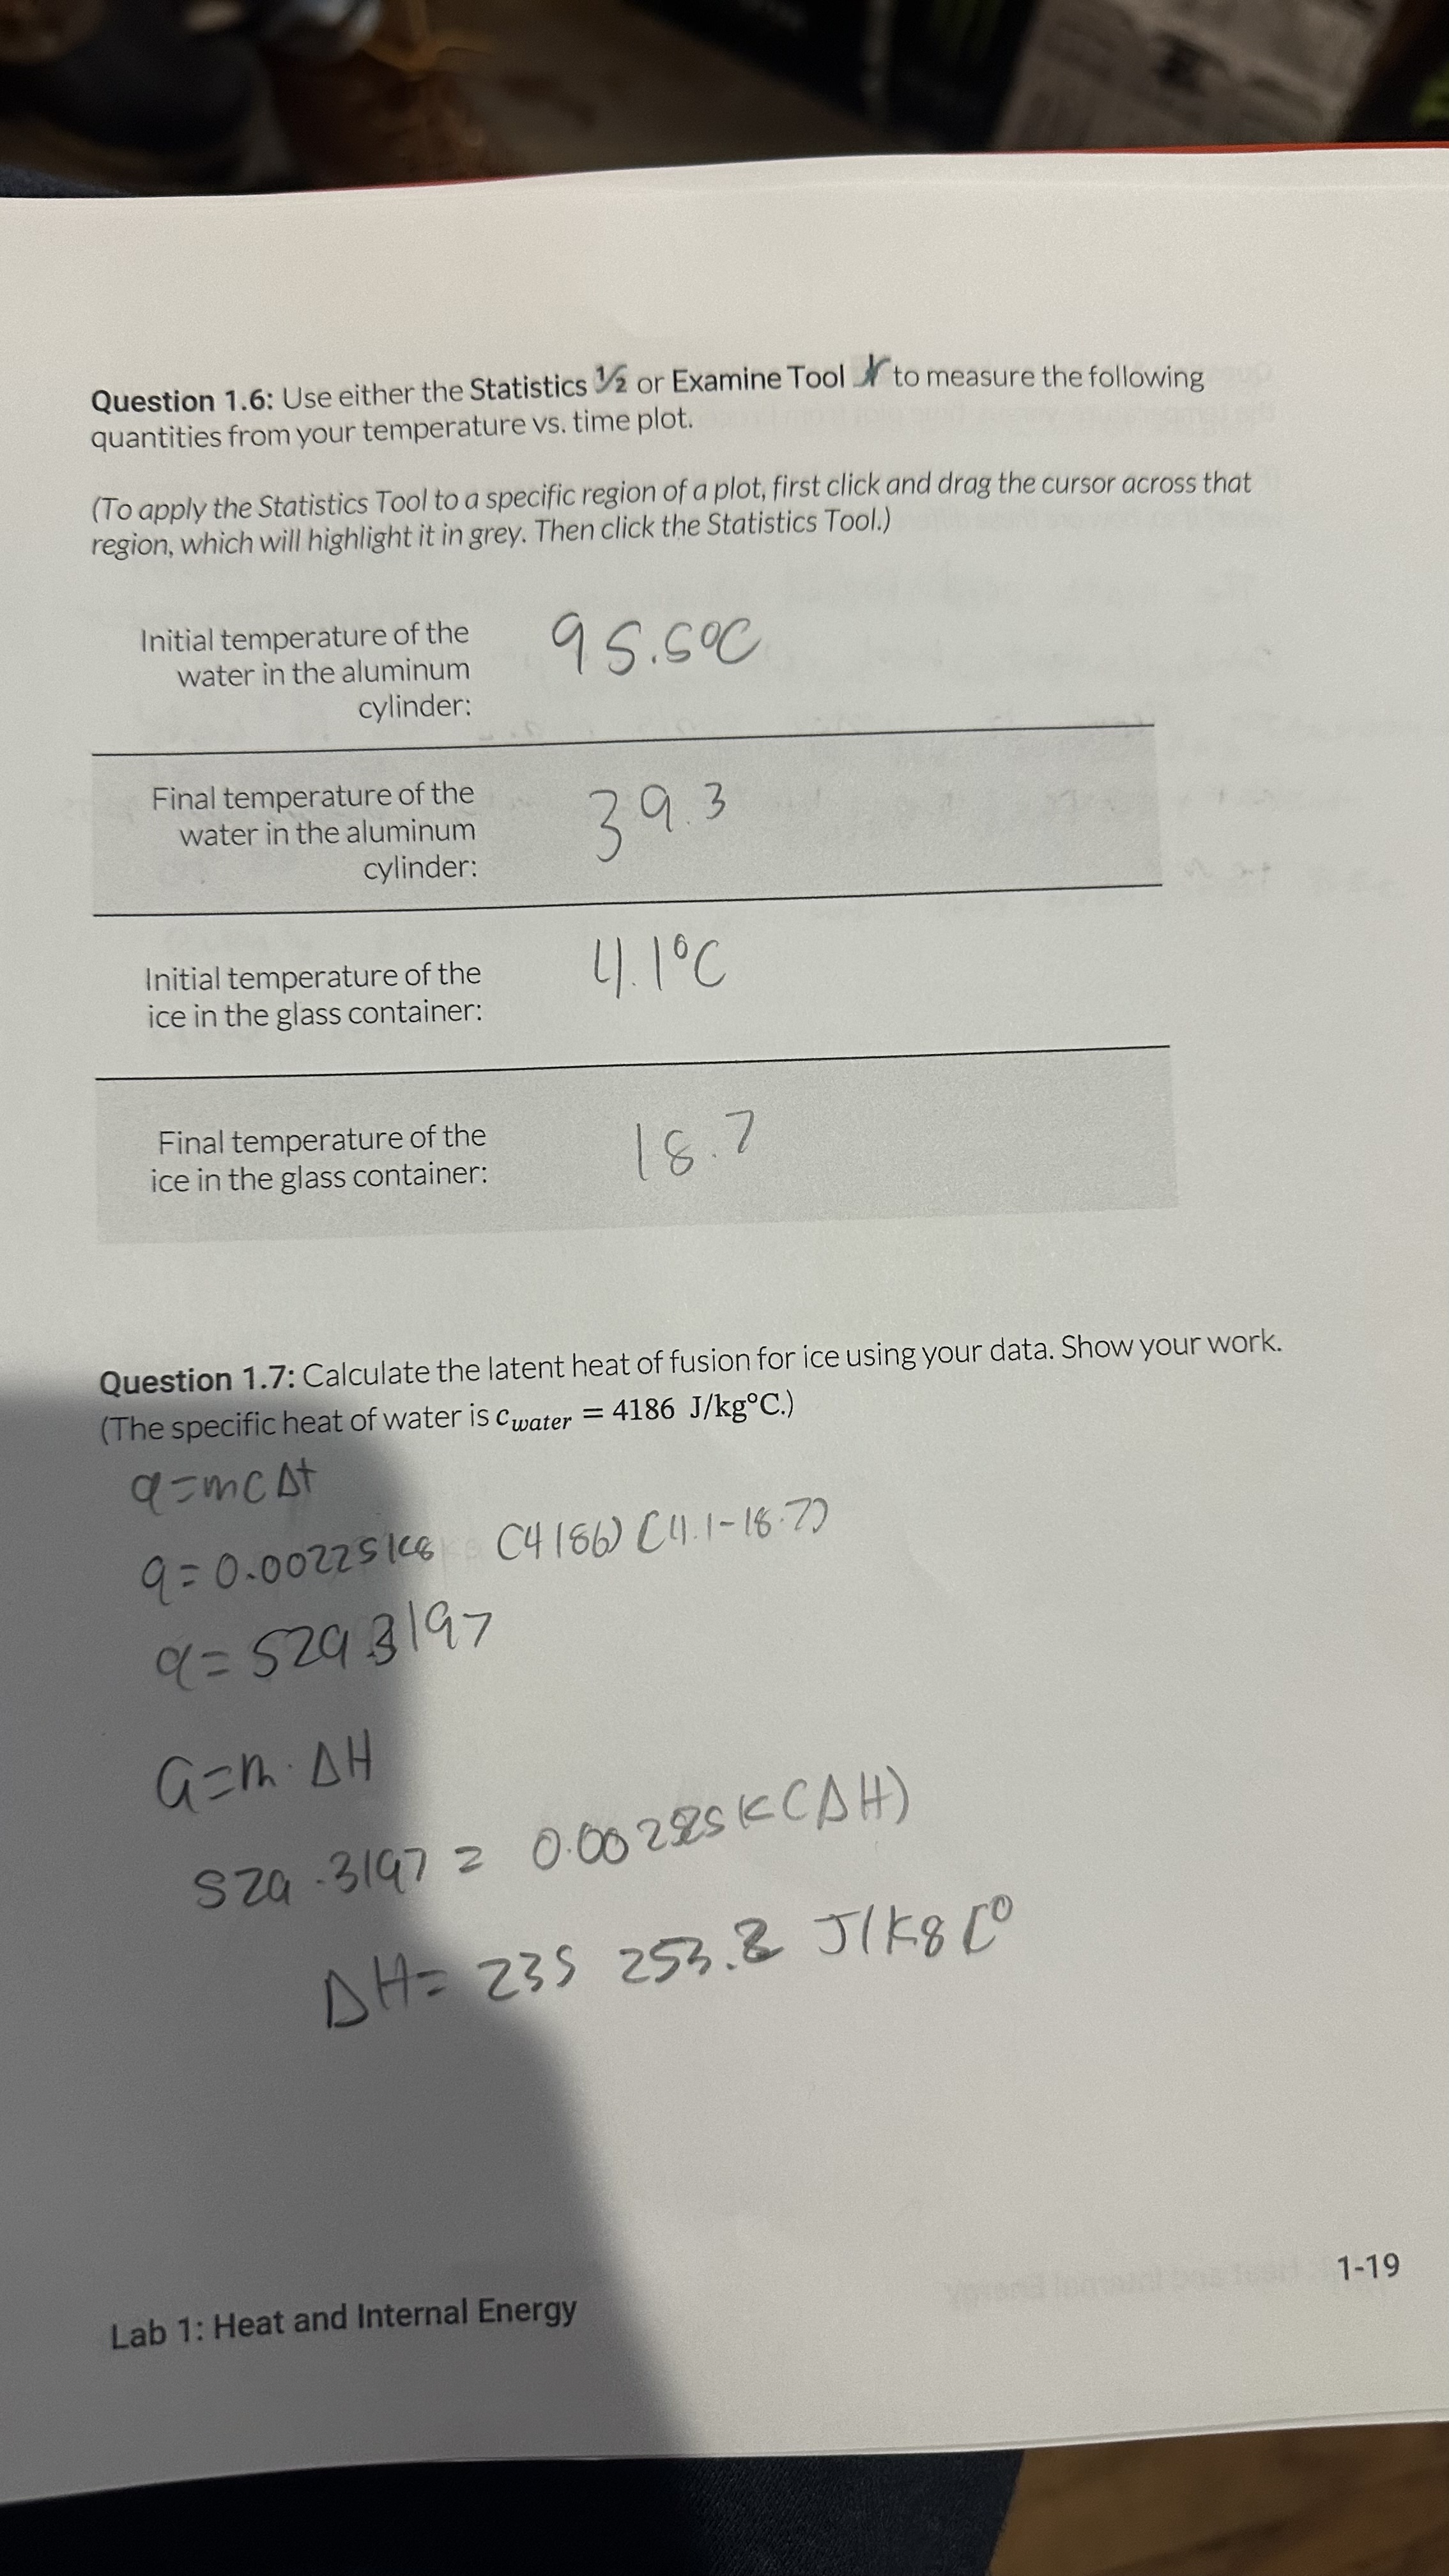 Question 1.6: Use either the Statistics ½ or Examine Tool to measure the following
quantities from your temperature vs. time plot.
(To apply the Statistics Tool to a specific region of a plot, first click and drag the cursor across that
region, which will highlight it in grey. Then click the Statistics Tool.)
Initial temperature of the
water in the aluminum
cylinder:
95.5°C
Final temperature of the
water in the aluminum
cylinder:
39.3
Initial temperature of the
ice in the glass container:
4.1°C
Final temperature of the
ice in the glass container:
18.7
Question 1.7: Calculate the latent heat of fusion for ice using your data. Show your work.
(The specific heat of water is c_water = 4186 J/kg°C.)
q=mcΔt
q=0.00225kg (4186)(4.1-18.7)
q=529.3197
Q=m·ΔH
529.3197 = 0.00225K(ΔH)
ΔH= 235 253.2 J/kg C°
1-19
Lab 1: Heat and Internal Energy